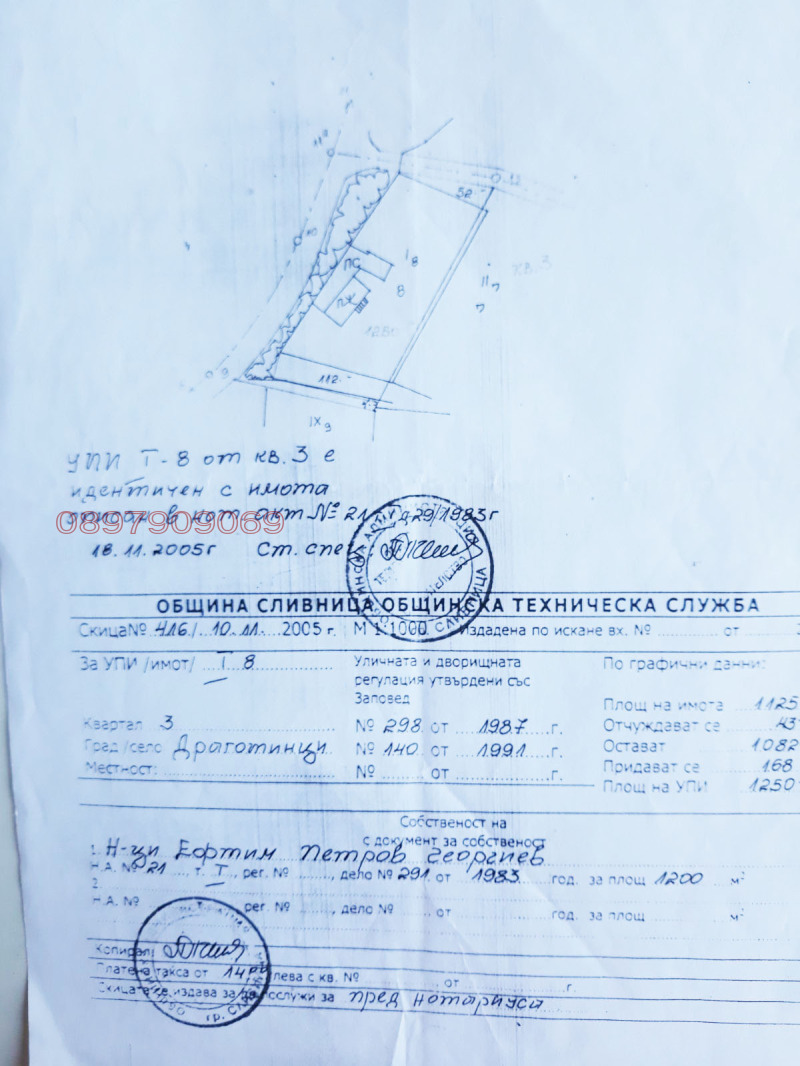 52
ПС
I 8
8
ПЖ
II 7
7
кв. 3
1250
9
112
IX 9
УПИ I-8 от кв. 3 е
идентичен с имота
описан в нот. акт № 21
0897909069
18.11.2005 г Ст. спец.
ОБЩИНА СЛИВНИЦА ОБЩИНСКА ТЕХНИЧЕСКА СЛУЖБА
Скица № 416/ 10.11. 2005 г. М 1:1000 Издадена по искане вх. № от
За УПИ /имот/ I 8
Уличната и дворищната
регулация утвърдени със
Заповед
Квартал 3 № 298 от 1987 г.
Град /село Драготинци № 140 от 1991 г.
Местност: № от г.
По графични данни:
Площ на имота 1125
Отчуждават се 43
Остават 1082
Придават се 168
Площ на УПИ 1250
Собственост на
с документ за собственост
1. Н-ци Ефтим Петров Георгиев
Н.А. № 21 т. I, рег. №, дело № 291 от 1983 год. за площ 1200 м²
2.
Н.А. № рег. №, дело № от год. за площ м²
Копирал:
Платена такса от 14 лева с кв. № от г.
Скицата се издава за да послужи за пред нотариуса